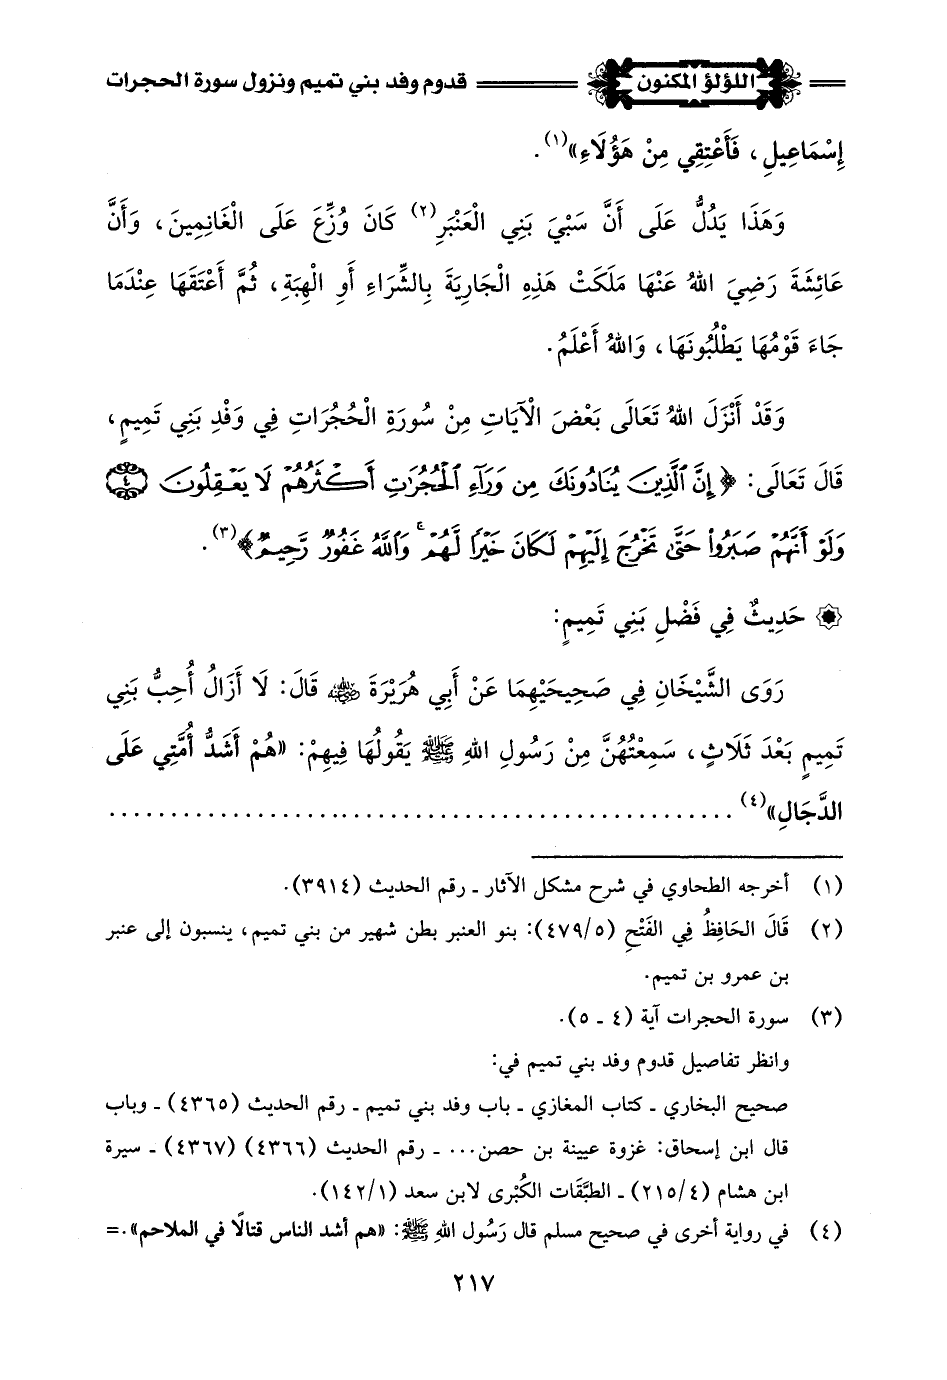 اللؤلؤ المكنون
قدوم وفد بني تميم ونزول سورة الحجرات
إِسْمَاعِيلِ، فَأَعْتِقِي مِنْ هَؤُلَاءِ»(١).
وَهَذَا يَدُلُّ عَلَى أَنَّ سَبْيَ بَنِي الْعَنْبَرِ(٢) كَانَ وُزِّعَ عَلَى الْغَانِمِينَ، وَأَنَّ
عَائِشَةَ رَضِيَ اللهُ عَنْهَا مَلَكَتْ هَذِهِ الْجَارِيَةَ بِالشِّرَاءِ أَوِ الْهِبَةِ، ثُمَّ أَعْتَقَهَا عِنْدَمَا
جَاءَ قَوْمُهَا يَطْلُبُونَهَا، وَاللهُ أَعْلَمُ.
وَقَدْ أَنْزَلَ اللهُ تَعَالَى بَعْضَ الْآيَاتِ مِنْ سُورَةِ الْحُجُرَاتِ فِي وَفْدِ بَنِي تَمِيمٍ،
قَالَ تَعَالَى: ﴿إِنَّ ٱلَّذِينَ يُنَادُونَكَ مِن وَرَآءِ ٱلْحُجُرَٰتِ أَكْثَرُهُمْ لَا يَعْقِلُونَ ۝٤
وَلَوْ أَنَّهُمْ صَبَرُوا۟ حَتَّىٰ تَخْرُجَ إِلَيْهِمْ لَكَانَ خَيْرًا لَّهُمْ ۚ وَٱللَّهُ غَفُورٌ رَّحِيمٌ﴾(٣).
۞ حَدِيثٌ فِي فَضْلِ بَنِي تَمِيمٍ:
رَوَى الشَّيْخَانِ فِي صَحِيحَيْهِمَا عَنْ أَبِي هُرَيْرَةَ رضي الله عنه قَالَ: لَا أَزَالُ أُحِبُّ بَنِي
تَمِيمٍ بَعْدَ ثَلَاثٍ، سَمِعْتُهُنَّ مِنْ رَسُولِ اللهِ ﷺ يَقُولُهَا فِيهِمْ: «هُمْ أَشَدُّ أُمَّتِي عَلَى
الدَّجَالِ»(٤) ..................................................
(١) أخرجه الطحاوي في شرح مشكل الآثار ـ رقم الحديث (٣٩١٤).
(٢) قَالَ الحَافِظُ فِي الفَتْحِ (٤٧٩/٥): بنو العنبر بطن شهير من بني تميم، ينسبون إلى عنبر
بن عمرو بن تميم.
(٣) سورة الحجرات آية (٤ ـ ٥).
وانظر تفاصيل قدوم وفد بني تميم في:
صحيح البخاري ـ كتاب المغازي ـ باب وفد بني تميم ـ رقم الحديث (٤٣٦٥) ـ وباب
قال ابن إسحاق: غزوة عيينة بن حصن... ـ رقم الحديث (٤٣٦٦) (٤٣٦٧) ـ سيرة
ابن هشام (٢١٥/٤) ـ الطبَّقَات الكُبْرى لابن سعد (١٤٢/١).
(٤) في رواية أخرى في صحيح مسلم قال رَسُول اللهِ ﷺ: «هم أشد الناس قتالًا في الملاحم».=
٢١٧